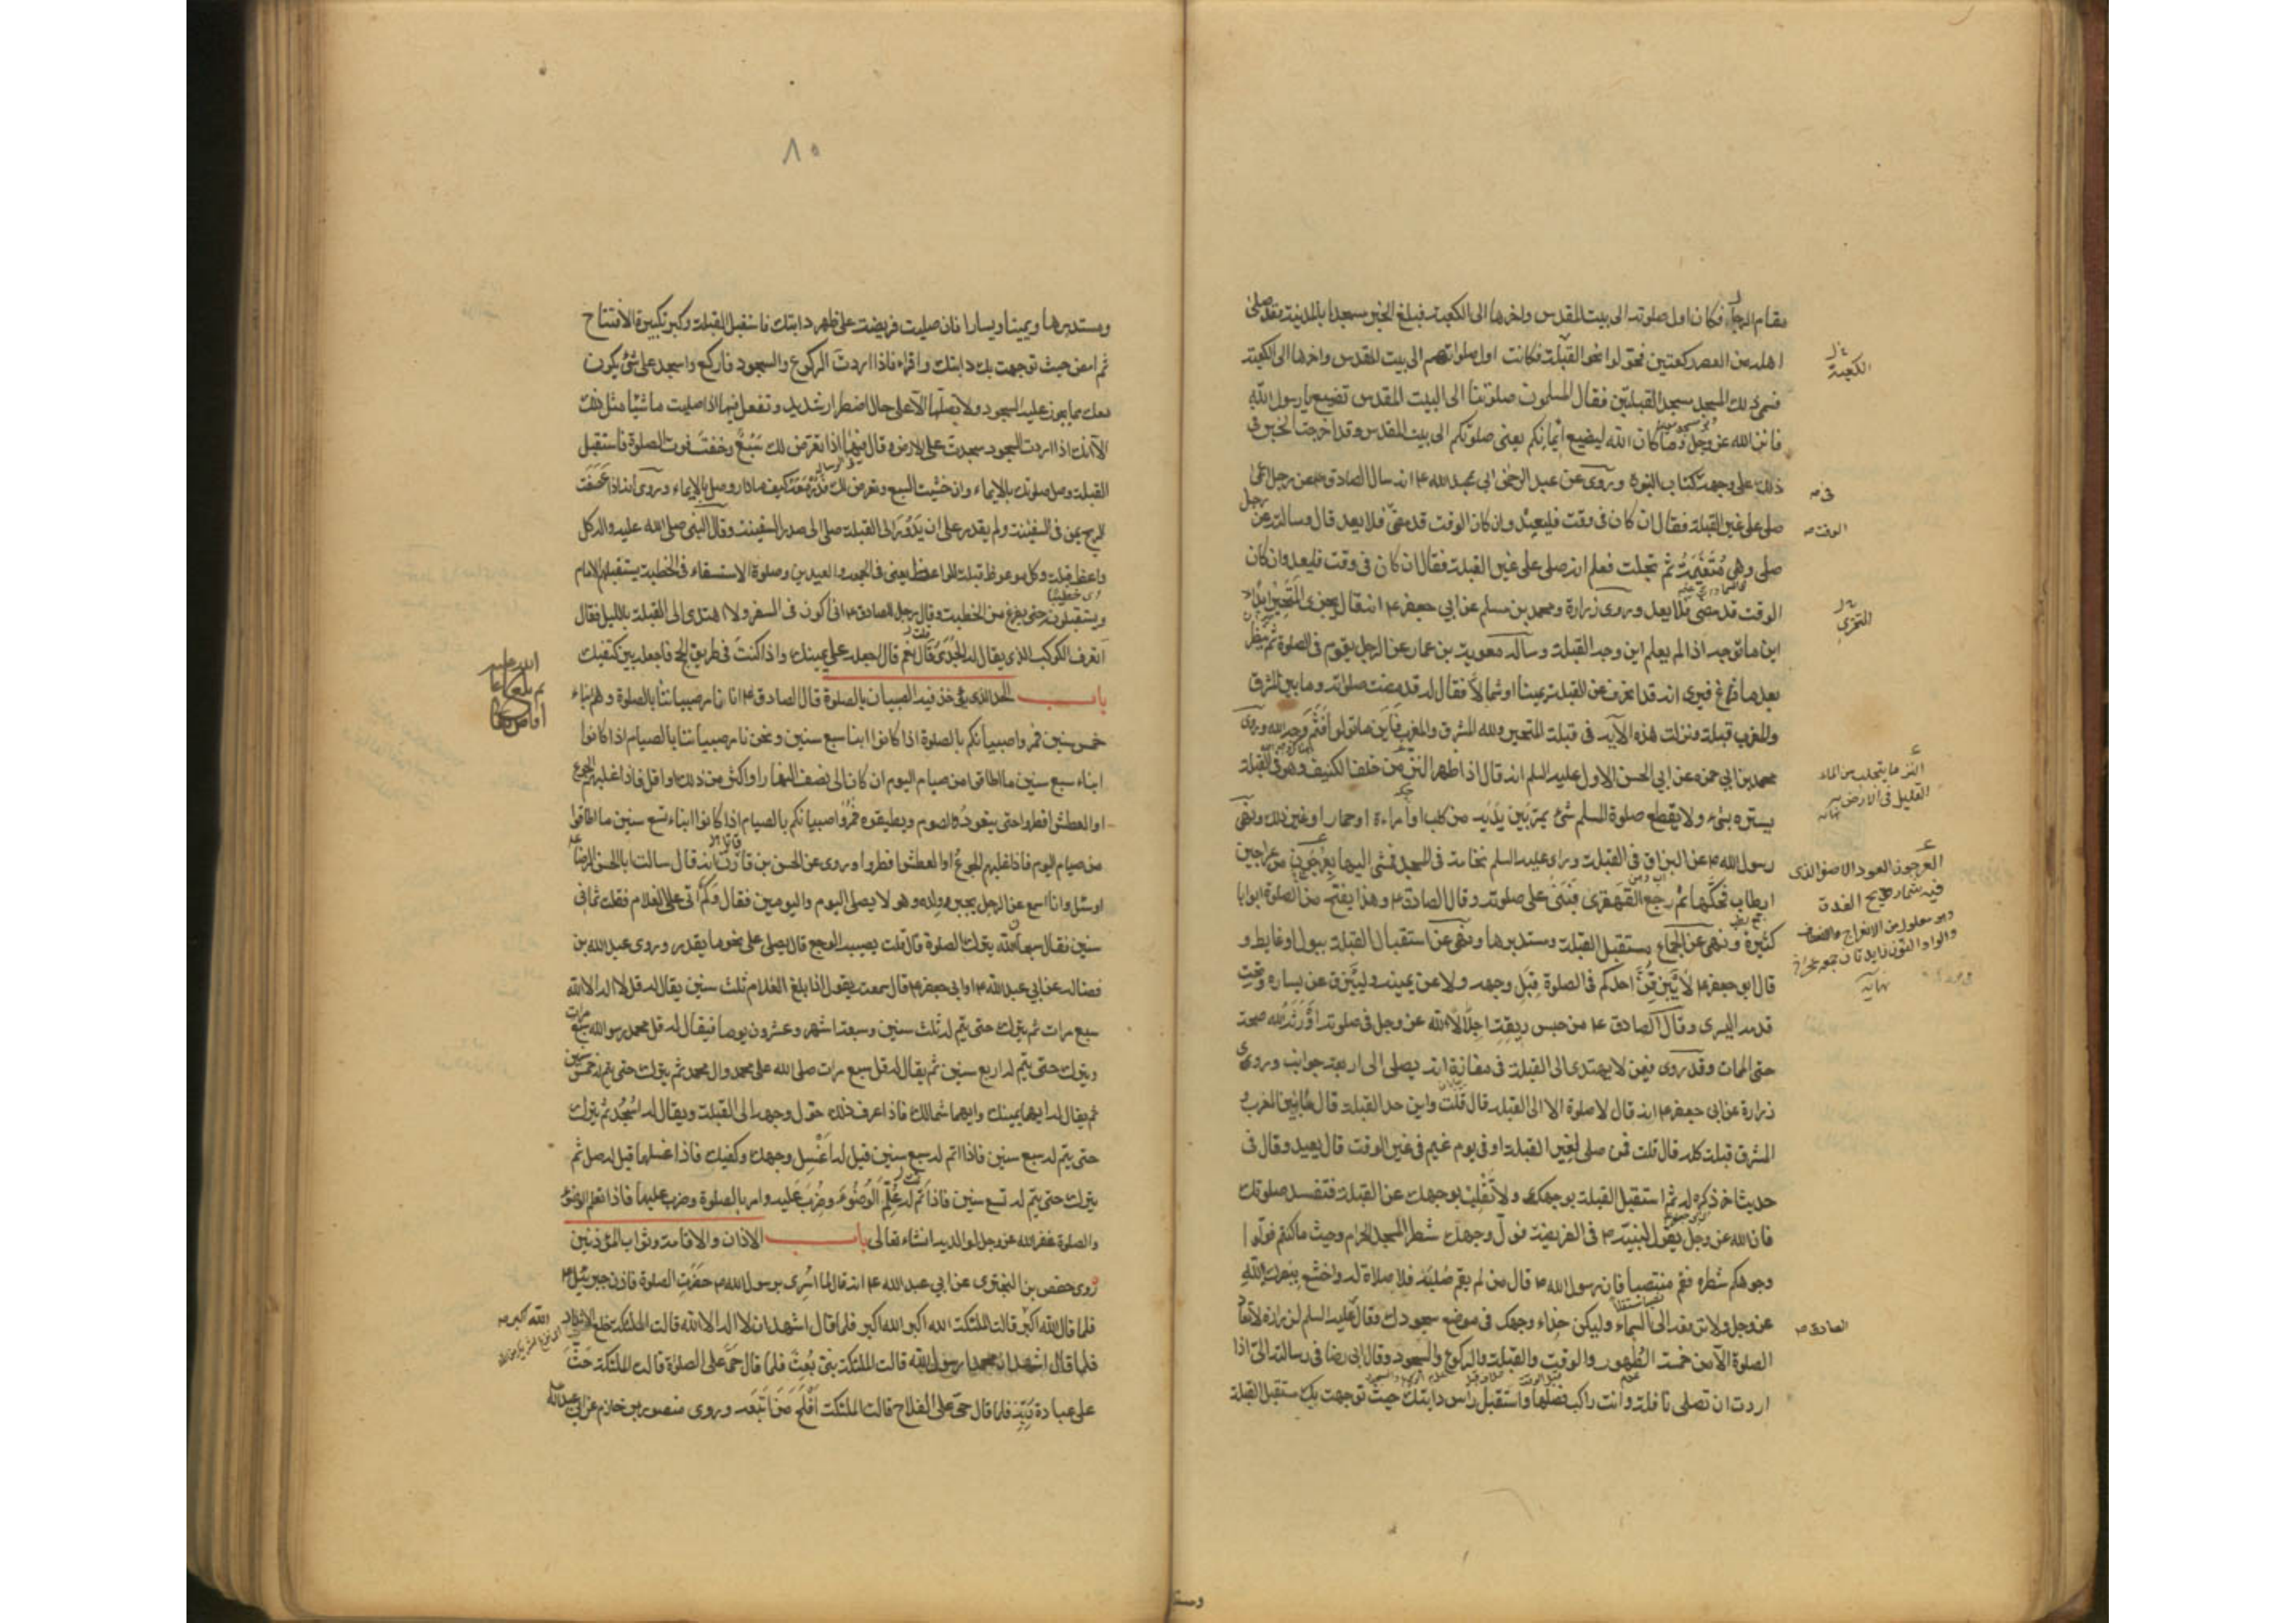 مقام الرجال فكان اول صلوته الى بيت المقدس واخرها الى الكعبة فبلغ الخبر مسجدا بالمدينة وقد صلى
اهله من العصر ركعتين فحولوا نحو القبلة فكانت اول صلوتهم الى بيت المقدس واخرها الى الكعبة
فسمى ذلك المسجد مسجد القبلتين فقال المسلمون صلوتنا الى البيت المقدس تضيع يا رسول الله
فانزل الله عز وجل وما كان الله ليضيع ايمانكم يعنى صلوتكم الى بيت المقدس وقد اخرجت الخبر فى
ذلك على وجهه كتاب النبوة وروى عن عبد الرحمن ابى عبد الله ع انه سال الصادق ع عن رجل اعمى
صلى على غير القبلة فقال ان كان فى وقت فليعد وان كان الوقت قد مضى فلا يعد قال وسالته عن رجل
صلى وهى متغيمة ثم تجلت فعلم انه صلى على غير القبلة فقال ان كان فى وقت فليعد وان كان
الوقت قد مضى فلا يعد وروى زرارة ومحمد بن مسلم عن ابي جعفر ع انه قال يجزى المتحير ابدا
اين ما توجه اذا لم يعلم اين وجه القبلة وساله معوية بن عمار عن الرجل يقوم فى الصلوة ثم ينظر
بعد ما فرغ فيرى انه قد انحرف عن القبلة يمينا او شمالا فقال له قد مضت صلوته وما بين المشرق
والمغرب قبلة ونزلت هذه الآية فى قبلة المتحير ولله المشرق والمغرب فاين ما تولوا فثم وجه الله وروى
محمد بن ابي حمزه عن ابي الحسن الاول عليه السلم انه قال اذا ظهر النز من خلف الكنيف وهو فى القبلة
يستره بشىء ولا يقطع صلوة المسلم شئ يمر بين يديه من كلب او امراءة او حمار او غير ذلك ونهى
رسول الله ص عن البزاق فى القبلة وراى عليه السلم نخامة فى المسجد فمشى اليها بعرجون من عراجين
ابن طاب فحكها ثم رجع القهقرى فبنى على صلوته وقال الصادق ع وهذا يفتح من الصلوة ابوابا
كثيرة ونهى عن الجماع مستقبل القبلة ومستدبرها ونهى عن استقبال القبلة ببول او غايط و
قال ابو جعفر ع لا يبزقن احدكم فى الصلوة قبل وجهه ولا عن يمينه وليبزق عن يساره وتحت
قدمه اليسرى وقال الصادق ع من حبس ريقه اجلالا لله عز وجل فى صلوته اورثه الله صحة
حتى الممات وقد روى فيمن لا يهتدى الى القبلة فى مفازة انه يصلى الى اربعة جوانب وروى
زرارة عن ابى جعفر ع انه قال لا صلوة الا الى القبلة قال قلت واين حد القبلة قال ما بين المغرب و
المشرق قبلة كله قال قلت فمن صلى لغير القبلة او فى يوم غيم فى غير الوقت قال يعيد وقال فى
حديث اخر ذكره له ثم استقبل القبلة بوجهك ولا تقلب بوجهك عن القبلة فتفسد صلوتك
فان الله عز وجل يقول لنبيه ص فى الفريضة فول وجهك شطر المسجد الحرام وحيث ما كنتم فولوا
وجوهكم شطره فقم منتصبا فان رسول الله ص قال من لم يقم صلبه فلا صلاة له واخشع ببصرك لله
عز وجل ولا ترفعه الى السماء وليكن حذاء وجهك فى موضع سجودك وقال عليه السلم لزرارة لا تعاد
الصلوة الا من خمسة الطهور والوقت والقبلة والركوع والسجود وقال ابى رضا فى رسالته الى اذا
اردت ان تصلى نافلة وانت راكب فصلها واستقبل راس دابتك حيث توجهت بك مستقبل القبلة
الكعبة
فى
الوقت
التحرى
النز ما يتحلب من الماء
القليل فى الارض
نهايه
العرجون العود الاصفر الذى
فيه شماريخ العذق
نهايه
الصادق
ومستد
٨٥
ومستدبرها ويمينا ويسارا فان صليت فريضة على ظهر دابتك فاستقبل القبلة وكبر تكبيرة الافتتاح
ثم امض حيث توجهت بك دابتك واقراء فاذا اردت الركوع والسجود فاركع واسجد على شئ يكون
معك مما يجوز عليه السجود ولا تصلها الا على حال اضطرار شديد وتفعل فيها اذا صليت ماشيا مثل ذلك
الا انك اذا اردت السجود سجدت على الارض وقال فيها اذا تعرض لك سبع وخفت فوت الصلوة فاستقبل
القبلة وصل صلوتك بالايماء وان خشيت السبع وتعرض لك فدر معه كيف ما دار وصل بالايماء وروى انه اذا عصفت
الريح بمن فى السفينة ولم يقدر على ان يدور الى القبلة صلى الى صدر السفينة وقال النبى صلى الله عليه واله كل
واعظ قبلة وكل موعوظ قبلة للواعظ يعنى فى الجمعة والعيدين وصلوة الاستسقاء فى الخطبة يستقبلهم الامام
ويستقبلونه حتى يفرغ من الخطبة وقال رجل للصادق ع انى اكون فى السفر ولا اهتدى الى القبلة بالليل فقال
اتعرف الكوكب الذى يقال له الجدى قال نعم قال اجعله على يمينك واذا كنت فى طريق الحج فاجعله بين كتفيك
باب الحد الذى يؤخذ فيه الصبيان بالصلوة قال الصادق ع انا نامر صبياننا بالصلوة وهم ابناء
خمس سنين فمروا صبيانكم بالصلوة اذا كانوا ابناء سبع سنين ونحن نامر صبياننا بالصيام اذا كانوا
ابناء سبع سنين ما اطاقوا من صيام اليوم ان كان الى نصف النهار او اكثر من ذلك او اقل فاذا غلبهم الجوع
او العطش افطروا حتى يتعودوا الصوم ويطيقوه فمروا صبيانكم بالصيام اذا كانوا ابناء تسع سنين ما اطاقوا
من صيام اليوم فاذا غلبهم الجوع او العطش افطروا وروى عن الحسن بن قارن انه قال سالت ابا الحسن الرضا ع
او سئل وانا اسمع عن الرجل يجبر ولده وهو لا يصلى اليوم واليومين فقال وكم اتى على الغلام فقلت ثمانى
سنين فقال سبحان الله يترك الصلوة قال قلت يصيبه الوجع قال يصلى على نحو ما يقدر وروى عبد الله بن
فضاله عن ابي عبد الله ع او ابى جعفر ع قال سمعته يقول اذا بلغ الغلام ثلث سنين يقال له قل لا اله الا الله
سبع مرات ثم يترك حتى يتم له ثلث سنين وسبعة اشهر وعشرون يوما فيقال له قل محمد رسول الله سبع مرات
ويترك حتى يتم له اربع سنين ثم يقال له قل سبع مرات صلى الله على محمد وال محمد ثم يترك حتى يتم له خمس سنين
ثم يقال له ايهما يمينك وايهما شمالك فاذا عرف ذلك حول وجهه الى القبلة ويقال له اسجد ثم يترك
حتى يتم له سبع سنين فاذا اتم له سبع سنين قيل له اغسل وجهك وكفيك فاذا غسلهما قيل له صل ثم
يترك حتى يتم له تسع سنين فاذا تم له علم الوضوء وضرب عليه وامر بالصلوة وضرب عليها فاذا تعلم الوضوء
والصلوة غفر الله عز وجل لوالديه انشاء تعالى باب الاذان والاقامة وثواب المؤذنين
روى حفص بن البخترى عن ابي عبد الله ع انه قال لما اسرى برسول الله ص حضرت الصلوة فاذن جبرئيل ع
فلما قال الله اكبر قالت الملئكة الله اكبر الله اكبر فلما قال اشهد ان لا اله الا الله قالت الملئكة خلع الانداد
فلما قال اشهد ان محمدا رسول الله قالت الملئكة نبى بعث فلما قال حى على الصلوة قالت الملئكة حث
على عبادة ربه فلما قال حى على الفلاح قالت الملئكة افلح من اتبعه وروى منصور بن حازم عن ابى عبد الله
الله اكبر